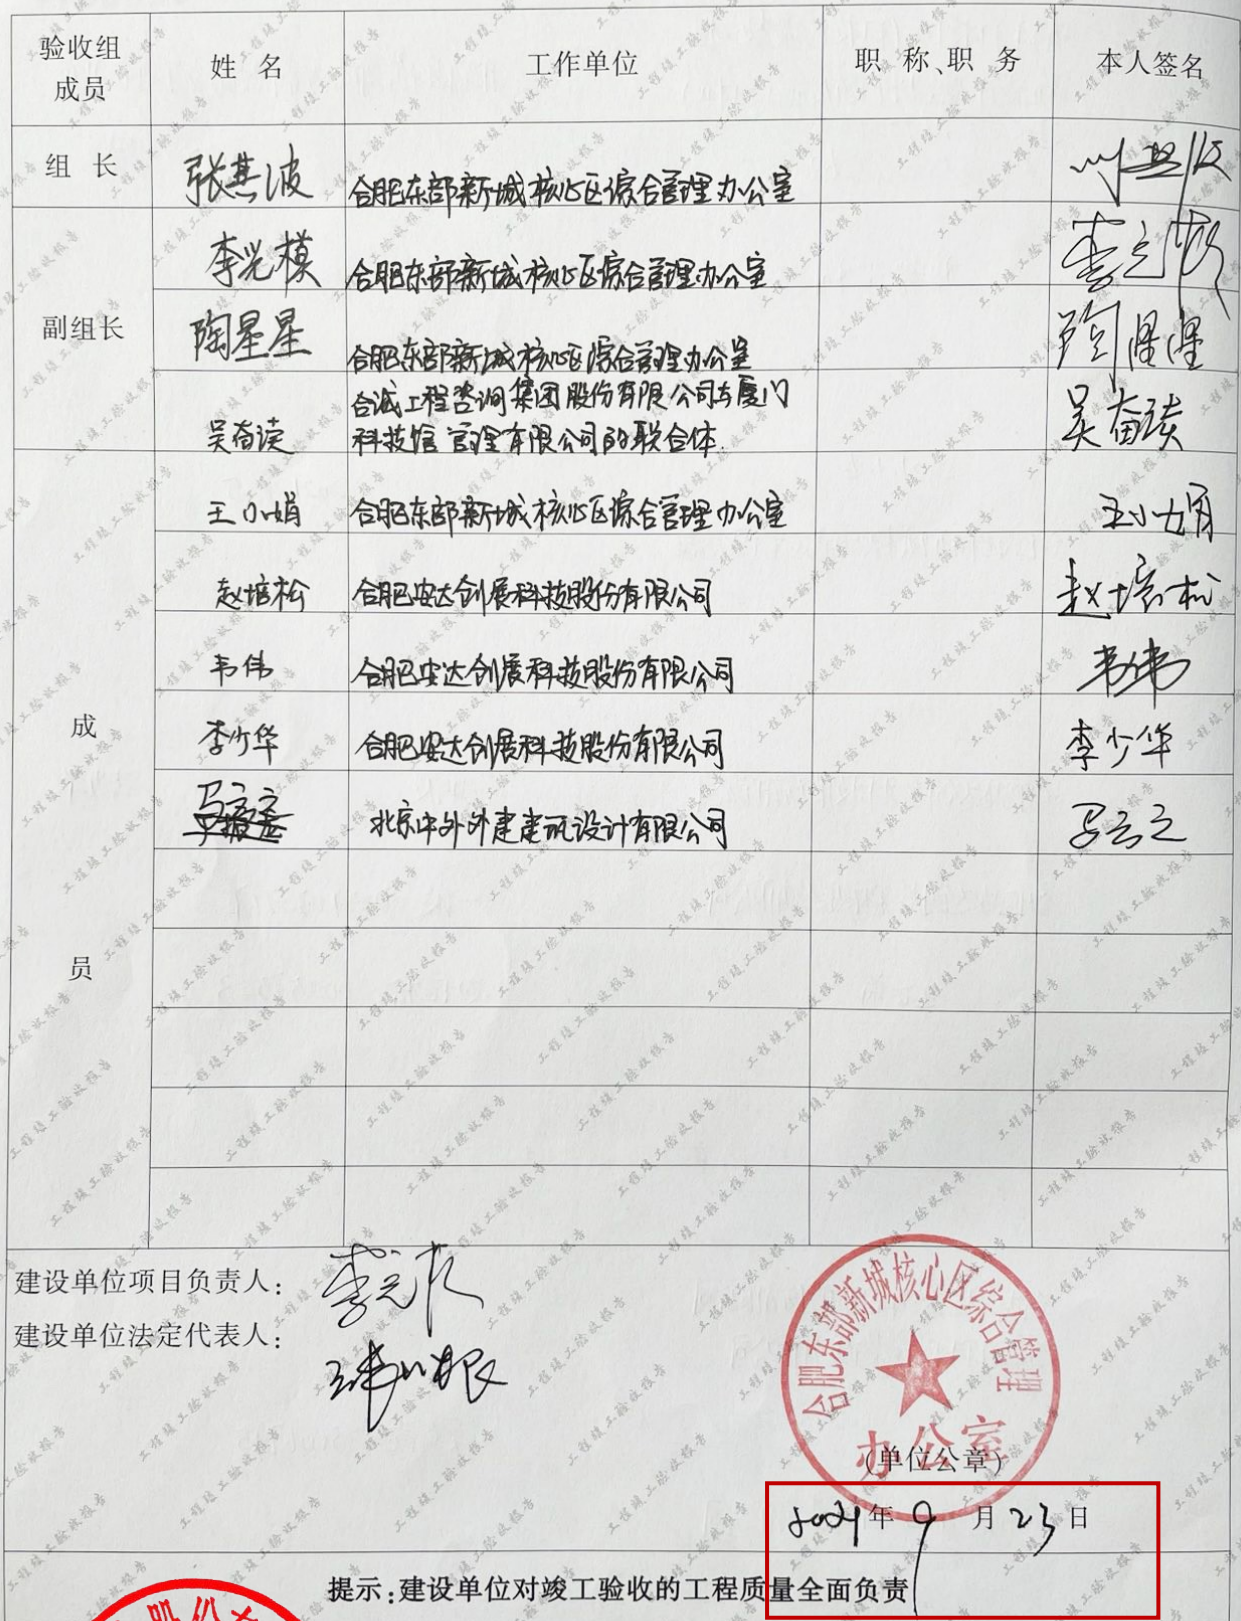 验收组成员 姓 名 工作单位 职 称、职 务 本人签名
组 长 张其波 合肥东部新城核心区综合管理办公室
李光模 合肥东部新城核心区综合管理办公室
副组长 陶星星 合肥东部新城核心区综合管理办公室 陶星星
合诚工程咨询集团股份有限公司与厦门
吴奋读 科技馆管理有限公司的联合体. 吴奋读
王小娟 合肥东部新城核心区综合管理办公室 王小娟
赵培松 合肥安达创展科技股份有限公司 赵培松
韦伟 合肥安达创展科技股份有限公司 韦伟
成 李少华 合肥安达创展科技股份有限公司 李少华
北京中外建建筑设计有限公司
员
建设单位项目负责人:
建设单位法定代表人:
合肥东部新城核心区综合管理
办公室
(单位公章)
2021年9月23日
提示:建设单位对竣工验收的工程质量全面负责
股份有
工程竣工验收报告